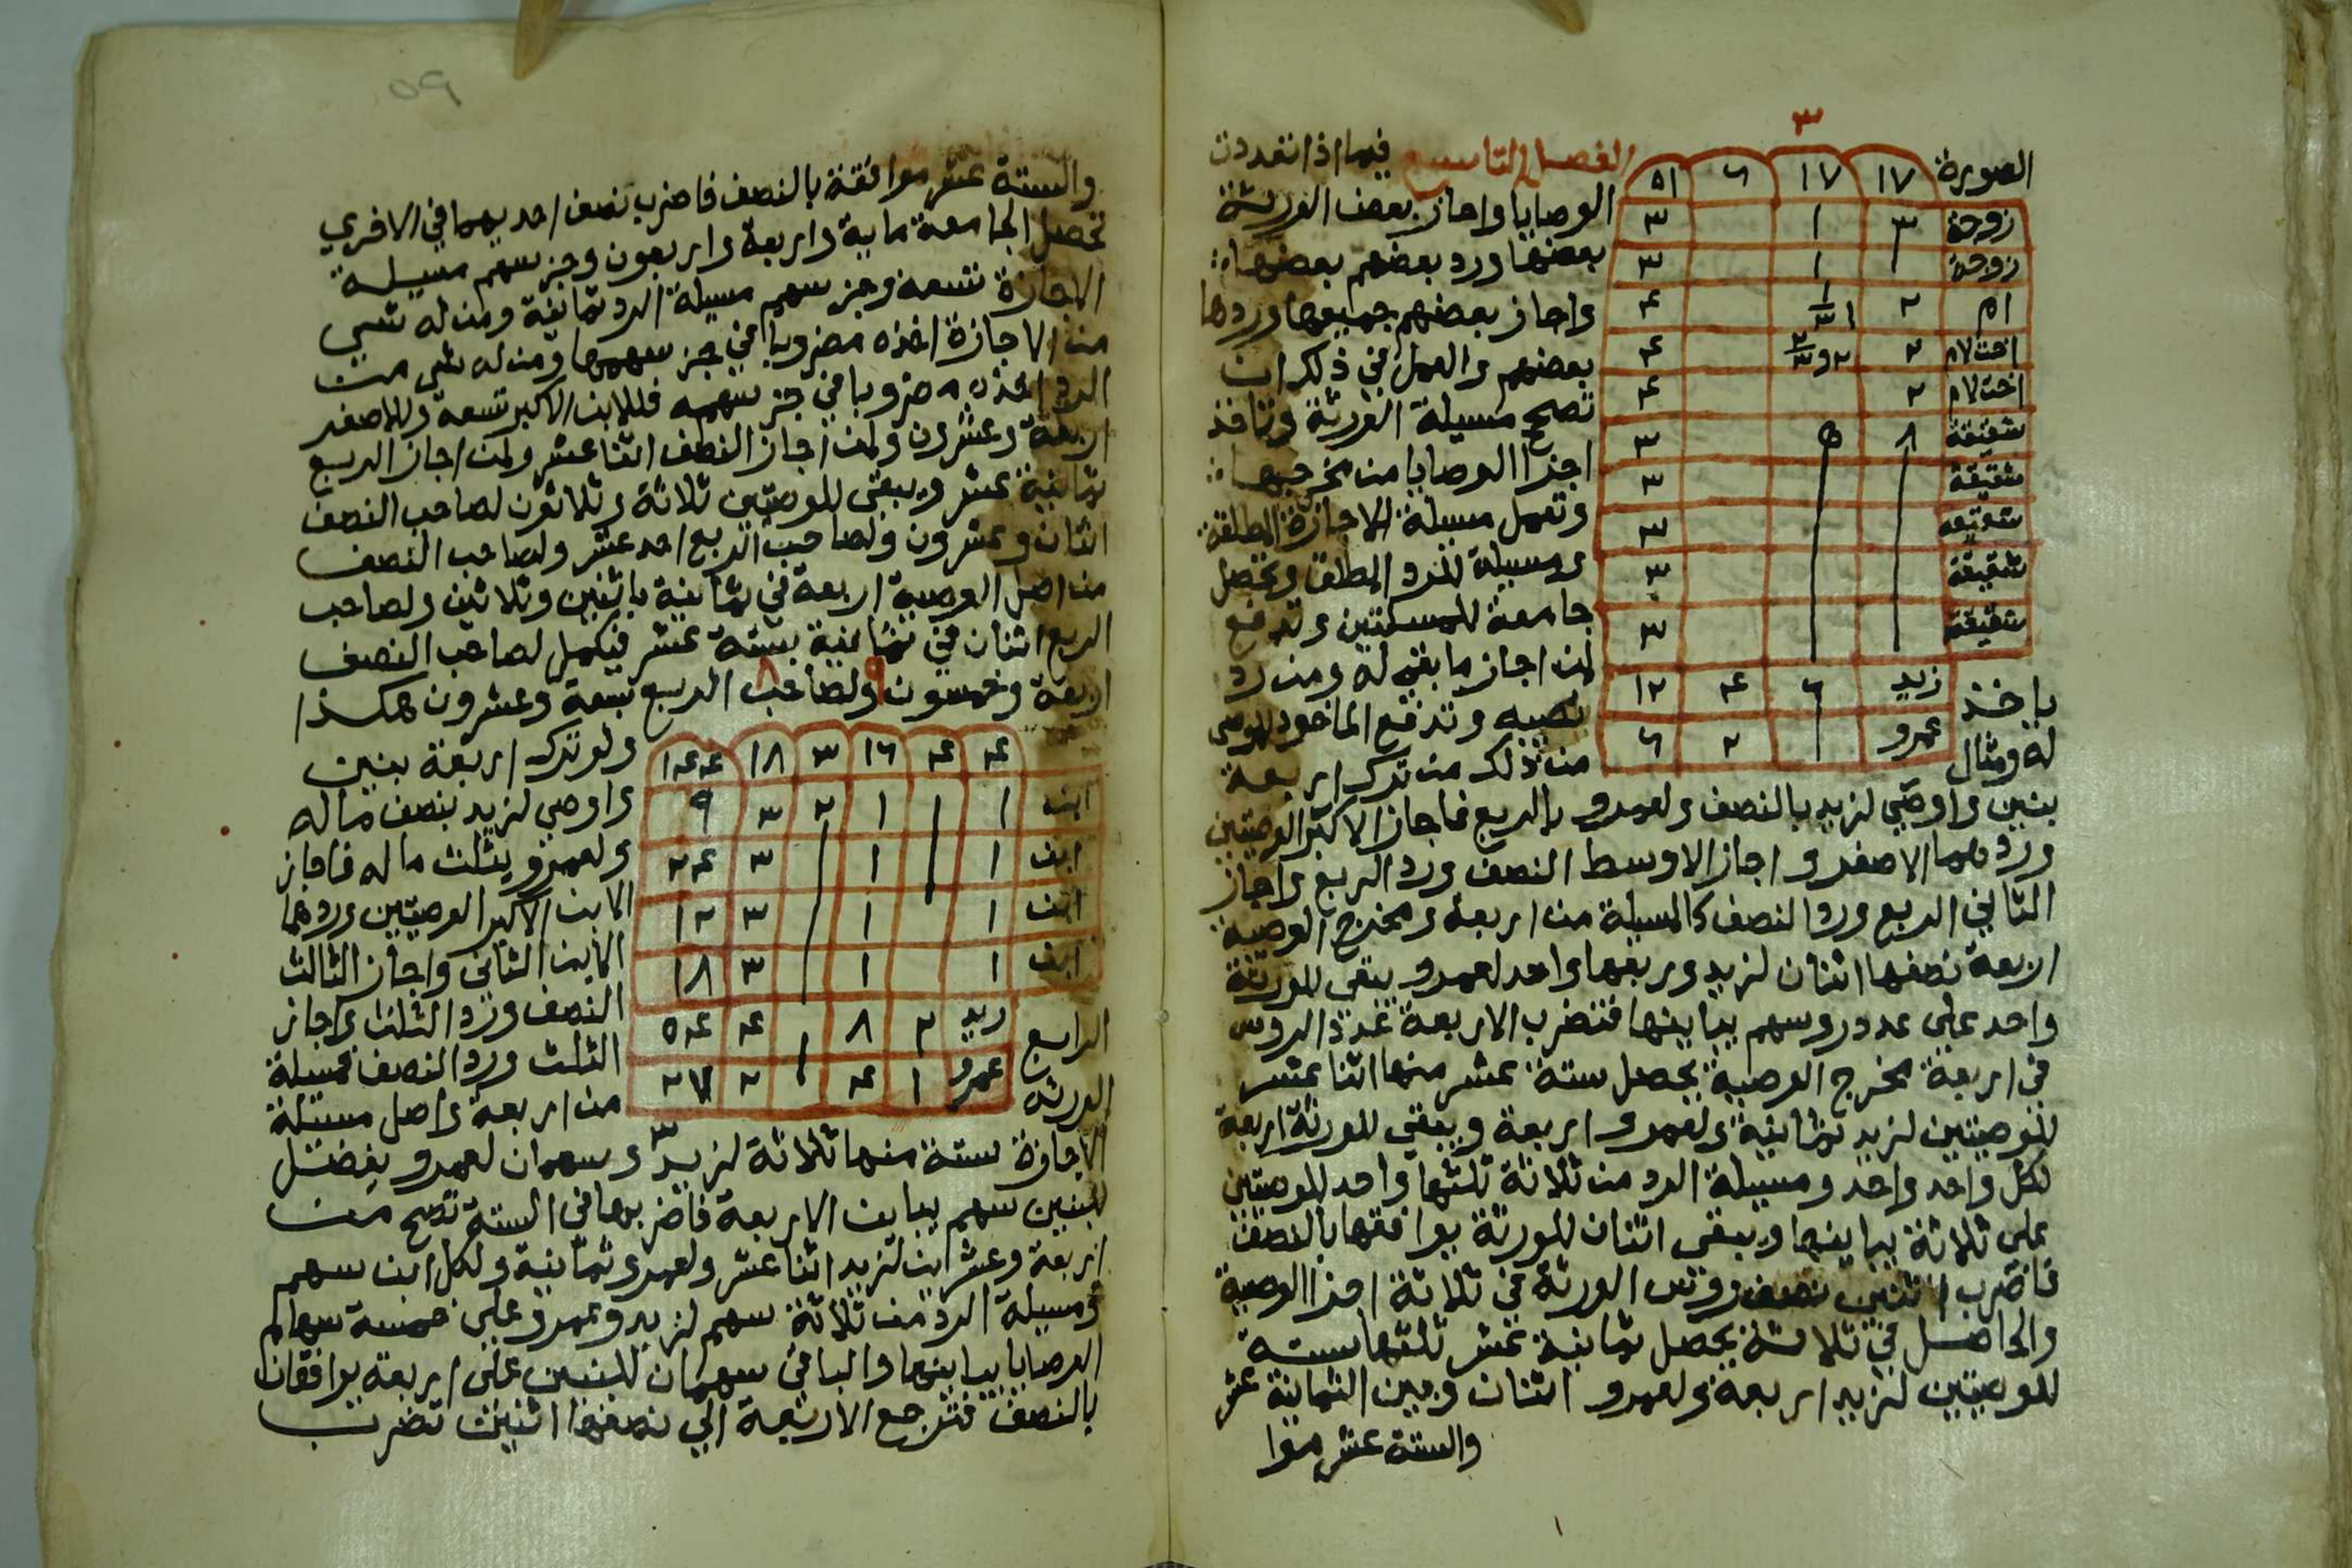 ٣
الصورة ١٧ ١٧ ٦ ٥١ الفصل التاسع فيما اذا تعددت
زوجة ٣ ١ ٣ الوصايا واجاز بعض الورثة
زوجة ١ ٣ بعضها ورد بعضهم بعضها
ام ٢ ٤ واجاز بعضهم جميعها وردها
اخت لام ٢ ٤ بعضهم والعمل في ذلك ان
اخت لام ٢ ٤ تصح مسيلة الورثة وتاخذ
شقيقة ٨ ٥ ٣ اجزا الوصايا من مخرجها
شقيقة ٣ وتعمل مسيلة الاجازة المطلقة
شقيقه ٣ ومسيلة للرد المطلق وتحصل
شقيقة ٣ جامعة للمسئلتين وتدفع
شقيقة ٣ لمن اجاز ما بقي له ومن رد
ياخذ زيد ٦ ٤ ١٢ نصيبه وتدفع الماخوذ للموصى
له ومثال عمرو ٢ ٦ من ذلك من ترك اربعة
بنين واوصى لزيد بالنصف ولعمرو بالربع فاجاز الاكبر الوصيتين
وردهما الاصغر واجاز الاوسط النصف ورد الربع واجاز
الثاني الربع ورد النصف فالمسيلة من اربعة ومخرج الوصية
اربعة نصفها اثنان لزيد وربعها واحد لعمرو يبقى للورثة
واحد على عدد روسهم يباينها فتضرب الاربعة عدد الروس
في اربعة مخرج الوصية يحصل ستة عشر منها اثنا عشر
للوصيتين لزيد ثمانية ولعمرو اربعة ويبقى للورثة اربعة
لكل واحد واحد ومسيلة الرد من ثلاثة ثلثها واحد للوصيتين
على ثلاثة يباينها ويبقى اثنان للورثة يوافقها بالنصف
فاضرب اثنين نصف روس الورثة في ثلاثة اجزا الوصية
والحاصل في ثلاثة يحصل ثمانية عشر ثلثها ستة
للوصيتين لزيد اربعة ولعمرو اثنان وبين الثمانية عشر
والستة عشر موا
٥٩
والستة عشر موافقة بالنصف فاضرب نصف احديهما في الاخرى
تحصل الجامعة ماية واربعة واربعون وجز سهم مسيلة
الاجازة تسعة وجز سهم مسيلة الرد ثمانية ومن له شي
من الاجازة اخذه مضروبا في جز سهمها ومن له شي من
الرد اخذه مضروبا في جز سهمه فللابن الاكبر تسعة وللاصغر
اربعة وعشرون ولمن اجاز النصف اثنا عشر ولمن اجاز الربع
ثمانية عشر ويبقى للوصيتين ثلاثة وثلاثون لصاحب النصف
اثنان وعشرون ولصاحب الربع احد عشر ولصاحب النصف
من اصل الوصية اربعة في ثمانية باثنين وثلاثين ولصاحب
الربع اثنان في ثمانية بستة عشر فيكمل لصاحب النصف
اربعة وخمسون ولصاحب الربع سبعة وعشرون هكذا
٩ ٨
٤ ٤ ١٦ ٣ ١٨ ١٤٤ ولو ترك اربعة بنين
ابن ١ ١ ١ ٢ ٣ ٩ واوصي لزيد بنصف ماله
ابن ١ ١ ٣ ٢٤ ولعمرو بثلث ماله فاجاز
ابن ١ ١ ٣ ١٢ الابن الاكبر الوصيتين وردهما
ابن ١ ١ ٣ ١٨ الابن الثاني واجاز الثالث
الرابع زيد ٢ ٨ ١ ٤ ٥٤ النصف ورد الثلث واجاز
الثلث ورد النصف فمسيلة
الورثة عمرو ١ ٤ ٢ ٢٧ من اربعة واصل مسئلة
الاجازة ستة منها ثلاثة لزيد ٣ وسهمان لعمرو يفضل
للبنين سهم يباين الاربعة فاضربها في الستة تصح من
اربعة وعشرين لزيد اثنا عشر ولعمرو ثمانية ولكل ابن سهم
ومسيلة الرد من ثلاثة سهم لزيد وعمرو على خمسة سهام
الوصايا يباينها والباقي سهمان للبنين على اربعة يوافقان
بالنصف فترجع الاربعة الي نصفها اثنين تضرب